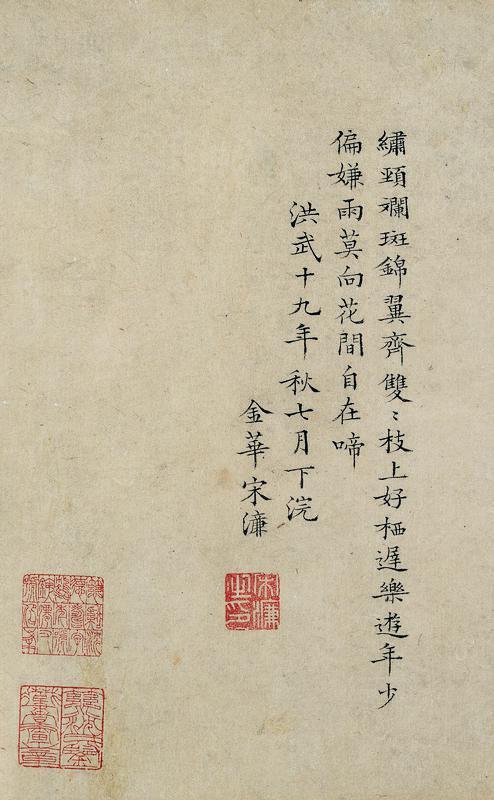 繡頸斕斑錦翼齊雙〻枝上好栖遲樂遊年少
偏嫌雨莫向花間自在啼
洪武十九年秋七月下浣
金華宋濂
宋濂之印